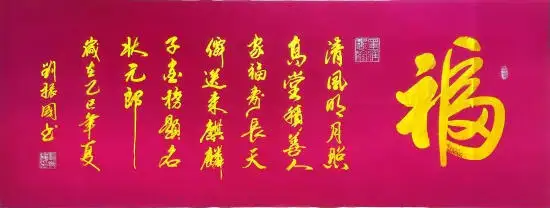 福
清風明月照
高堂積善人
家福寿長天
僊送来麒麟
子金榜題名
状元郎
歲在乙巳年夏
劉振國书